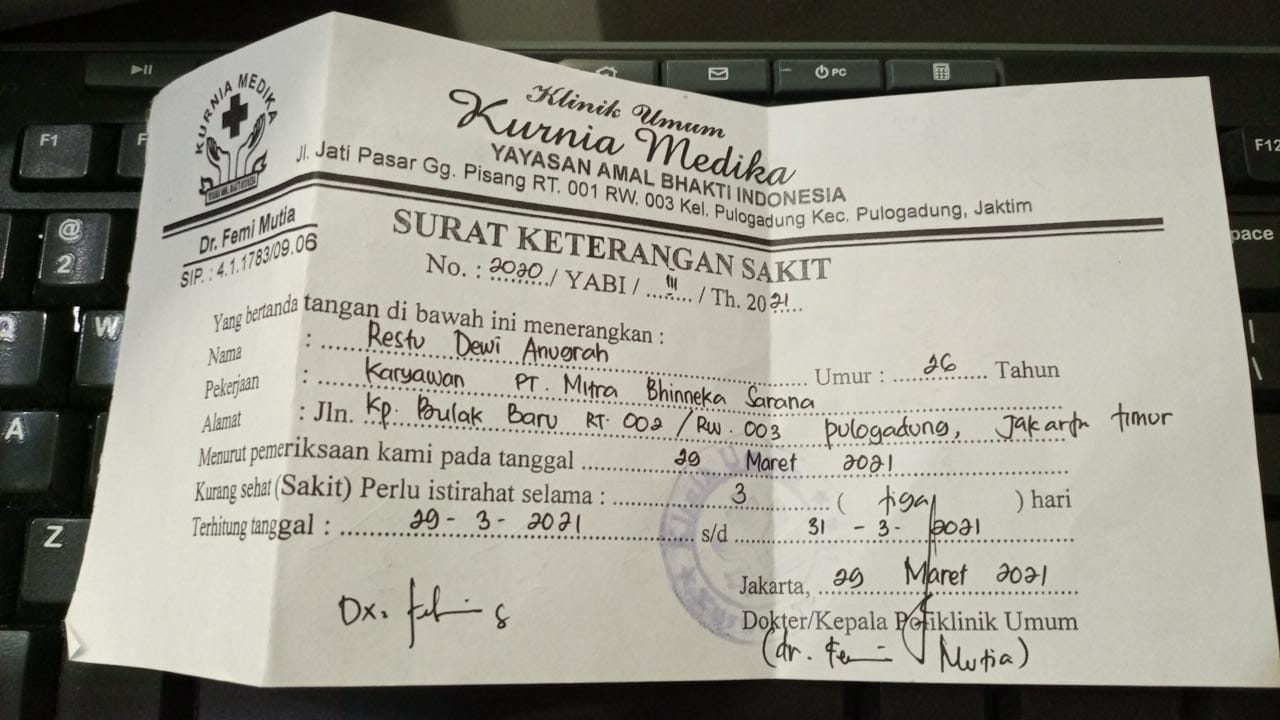 KURNIA MEDIKA
Klinik Umum
Kurnia Medika
YAYASAN AMAL BHAKTI INDONESIA
Jl. Jati Pasar Gg. Pisang RT. 001 RW. 003 Kel. Pulogadung Kec. Pulogadung, Jaktim
Dr. Femi Mutia
SIP. : 4.1.1783/09.06
SURAT KETERANGAN SAKIT
No. : 2020 / YABI / III / Th. 2021
Yang bertanda tangan di bawah ini menerangkan :
Nama : Restu Dewi Anugrah Umur : 26 Tahun
Pekerjaan : Karyawan PT. Mitra Bhinneka Sarana
Alamat : Jln. Kp. Bulak Baru RT. 002 / RW. 003 pulogadung, Jakarta timur
Menurut pemeriksaan kami pada tanggal 29 Maret 2021
Kurang sehat (Sakit) Perlu istirahat selama : 3 ( tiga ) hari
Terhitung tanggal : 29 - 3 - 2021 s/d 31 - 3 - 2021
Jakarta, 29 Maret 2021
Dx:
Dokter/Kepala Poliklinik Umum
(dr. Femi Mutia)
F1
@
2
Q
W
A
Z
PC
F12